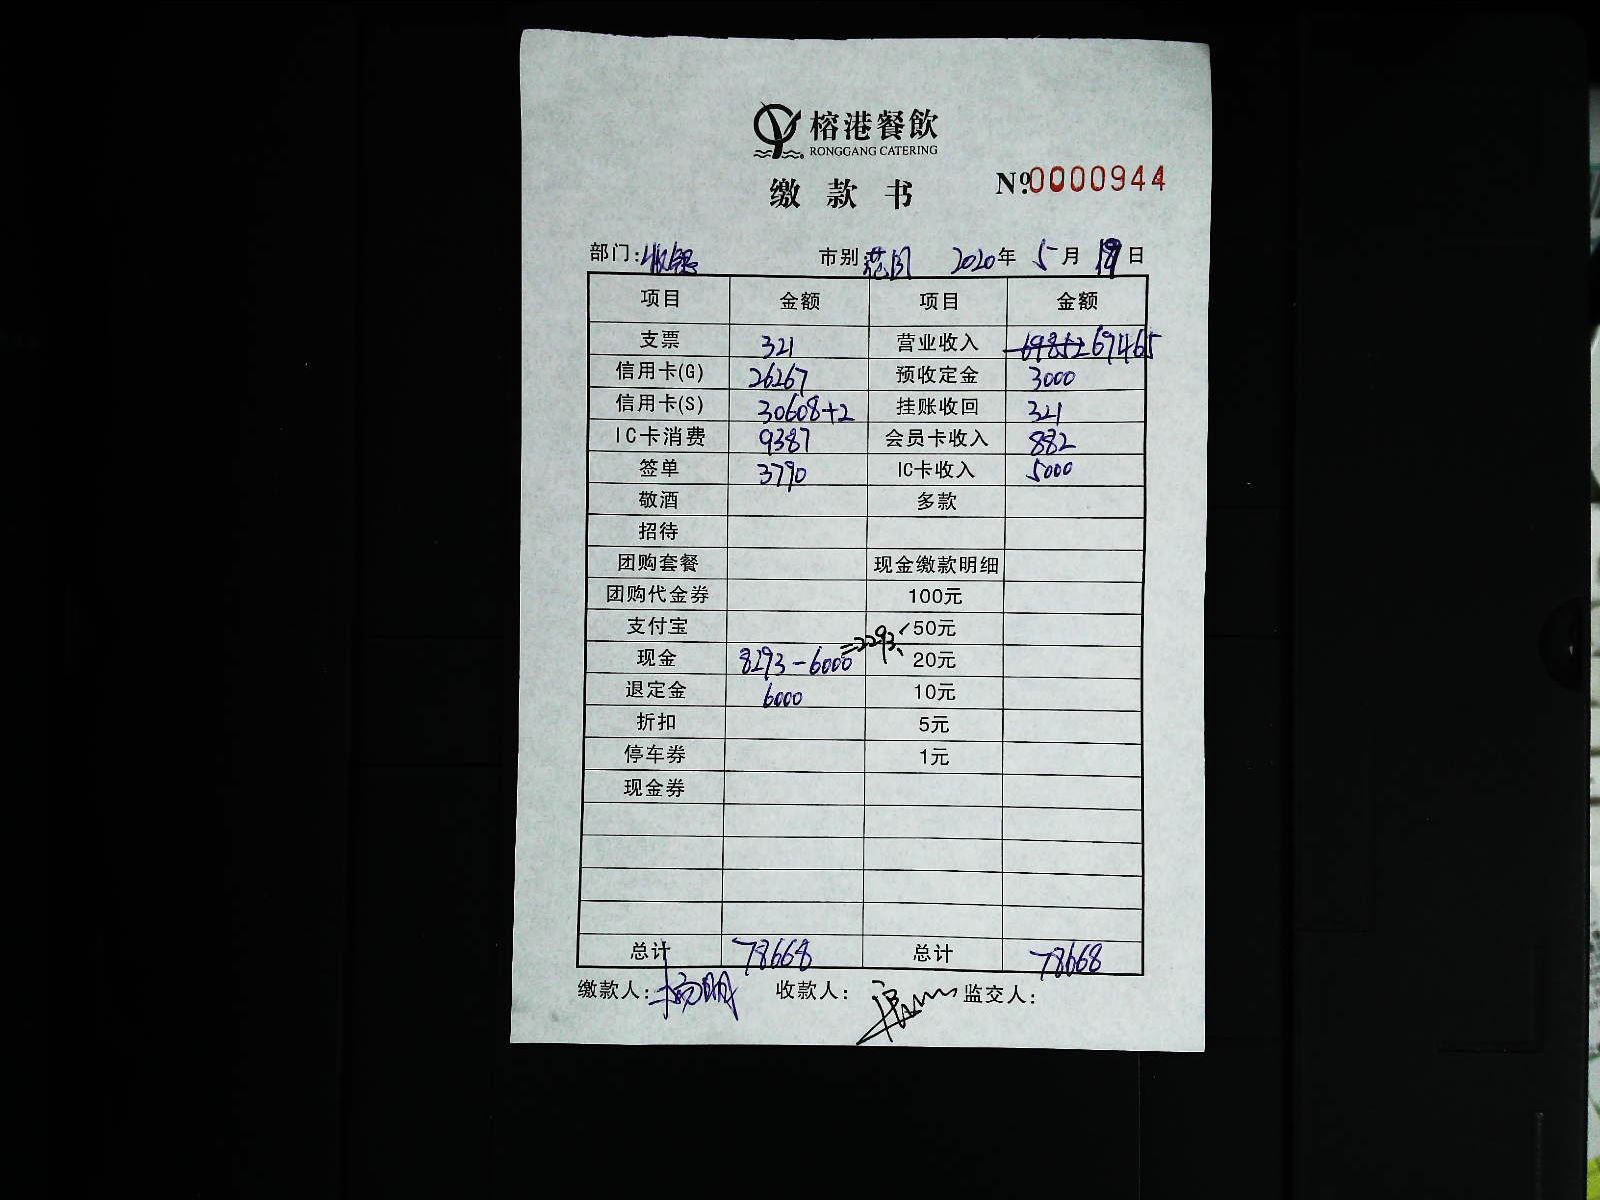 榕港餐飲
RONGGANG CATERING
缴款书 No.0000944
部门:收银 市别 2020年5月日
项目 金额 项目 金额
支票 321 营业收入 69852 69465
信用卡(G) 26267 预收定金 3000
信用卡(S) 30608+2 挂账收回 321
IC卡消费 9387 会员卡收入 882
签单 3790 IC卡收入 5000
敬酒 多款
招待
团购套餐 现金缴款明细
团购代金券 100元
支付宝 50元
现金 8293-6000=2293 20元
退定金 6000 10元
折扣 5元
停车券 1元
现金券
总计 78668 总计 78668
缴款人:杨明 收款人: 监交人: